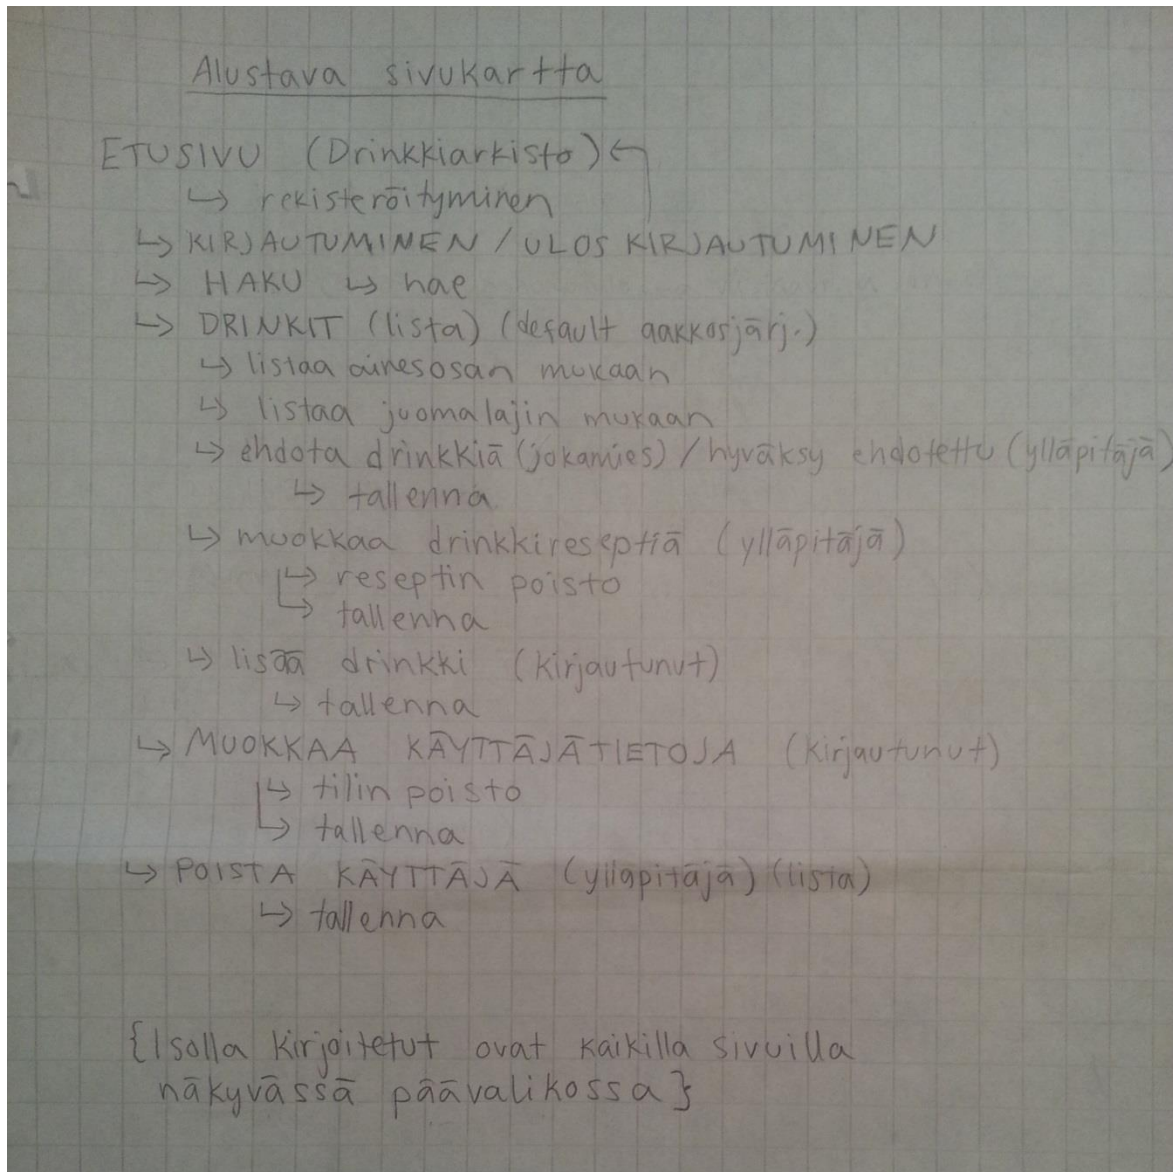 Alustava sivukartta
ETUSIVU (Drinkkiarkisto)
↳ rekisteröityminen
↳ KIRJAUTUMINEN / ULOS KIRJAUTUMINEN
↳ HAKU ↳ hae
↳ DRINKIT (lista) (default aakkosjärj.)
↳ listaa ainesosan mukaan
↳ listaa juomalajin mukaan
↳ ehdota drinkkiä (jokamies) / hyväksy ehdotettu (ylläpitäjä)
↳ tallenna
↳ muokkaa drinkkireseptiä (ylläpitäjä)
↳ reseptin poisto
↳ tallenna
↳ lisää drinkki (kirjautunut)
↳ tallenna
↳ MUOKKAA KÄYTTÄJÄTIETOJA (kirjautunut)
↳ tilin poisto
↳ tallenna
↳ POISTA KÄYTTÄJÄ (ylläpitäjä) (lista)
↳ tallenna
{Isolla kirjoitetut ovat kaikilla sivuilla
näkyvässä päävalikossa}